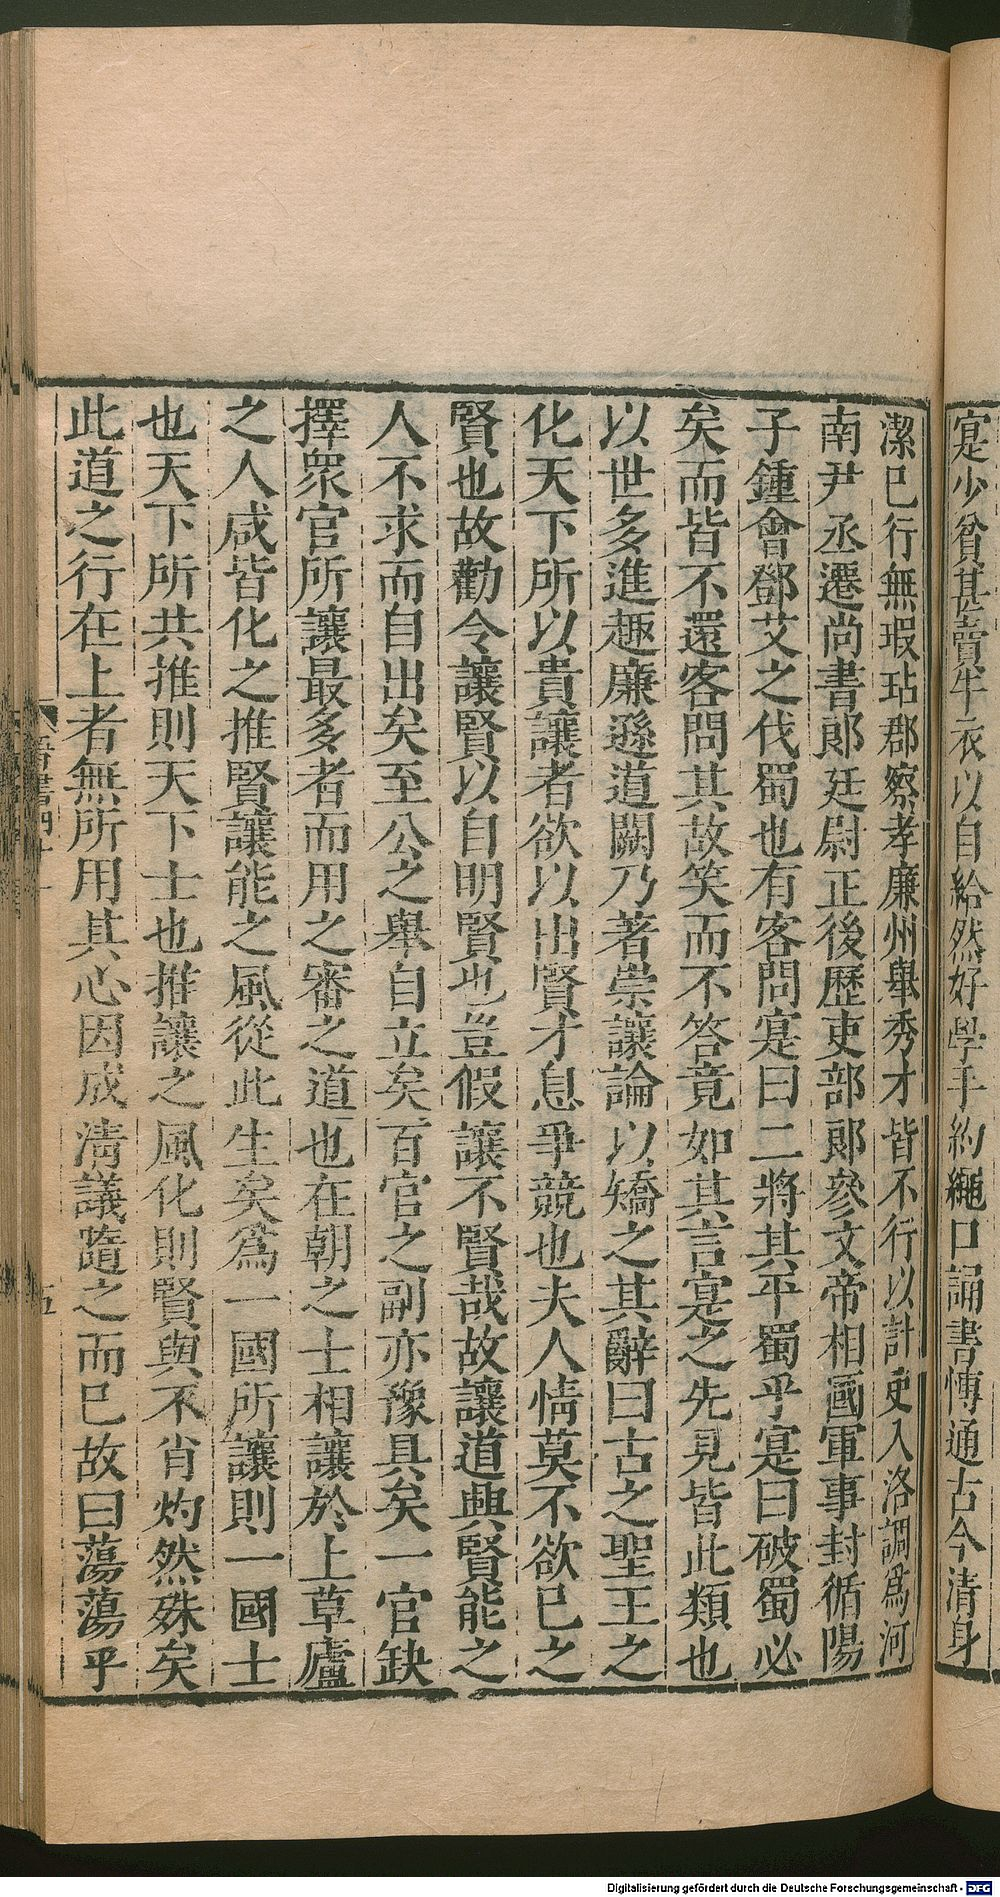 寔少貧甚賣牛衣以自給然好學手約繩口誦書慱通古今清身
潔已行無瑕玷郡察孝廉州舉秀才皆不行以計吏入洛調爲河
南尹丞遷尚書郞廷尉正後歷吏部郞參文帝相國軍事封循陽
子鍾會鄧艾之伐蜀也有客問寔曰二將其平蜀乎寔曰破蜀必
矣而皆不還客問其故笑而不答竟如其言寔之先見皆此類也
以世多進趣廉遜道闕乃著崇讓論以矯之其辭曰古之聖王之
化天下所以貴讓者欲以出賢才息爭競也夫人情莫不欲已之
賢也故勸令讓賢以自明賢也豈假讓不賢哉故讓道興賢能之
人不求而自出矣至公之舉自立矣百官之副亦豫具矣一官缺
擇衆官所讓最多者而用之審之道也在朝之士相讓於上草廬
之人咸皆化之推賢讓能之風從此生矣爲一國所讓則一國士
也天下所共推則天下士也推讓之風化則賢與不肖灼然殊矣
此道之行在上者無所用其心因成清議隨之而已故曰蕩蕩乎
晉書四十一
五
Digitalisierung gefördert durch die Deutsche Forschungsgemeinschaft - DFG